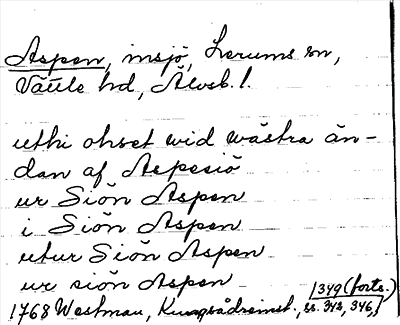 Aspen, insjö, Lerums sn,
Vättle hd, Älvsb. l.
uthi ohset wid wästra än-
dan af Aspesiö
ur Siön Aspen
i Siön Aspen
utur Siön Aspen
ur siön Aspen
1349 (forts.)
1768 Westman, Kungsådreinst., ss. 342, 346,